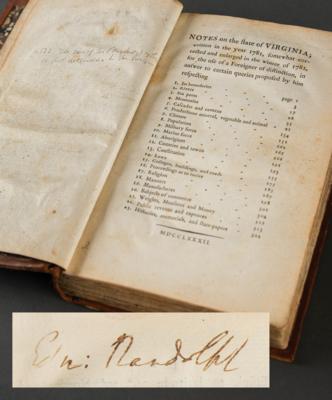 NOTES on the ſtate of VIRGINIA;
written in the year 1781, ſomewhat cor-
rected and enlarged in the winter of 1782,
for the uſe of a Foreigner of diſtinction, in
anſwer to certain queries propoſed by him
reſpecting
1. Its boundaries page 1
2. Rivers
3. Sea ports
4. Mountains
5. Caſcades and caverns
6. Productions mineral, vegetable and animal
7. Climate
8. Population
9. Military force
10. Marine force
11. Aborigines
12. Counties and towns
13. Conſtitution
14. Laws
15. Colleges, buildings, and roads
16. Proceedings as to tories
17. Religion
18. Manners
19. Manufactures
20. Subjects of commerce
21. Weights, Meaſures and Money
22. Public revenue and expences
23. Hiſtories, memorials, and ſtate-papers
MDCCLXXXII
Edm: Randolph